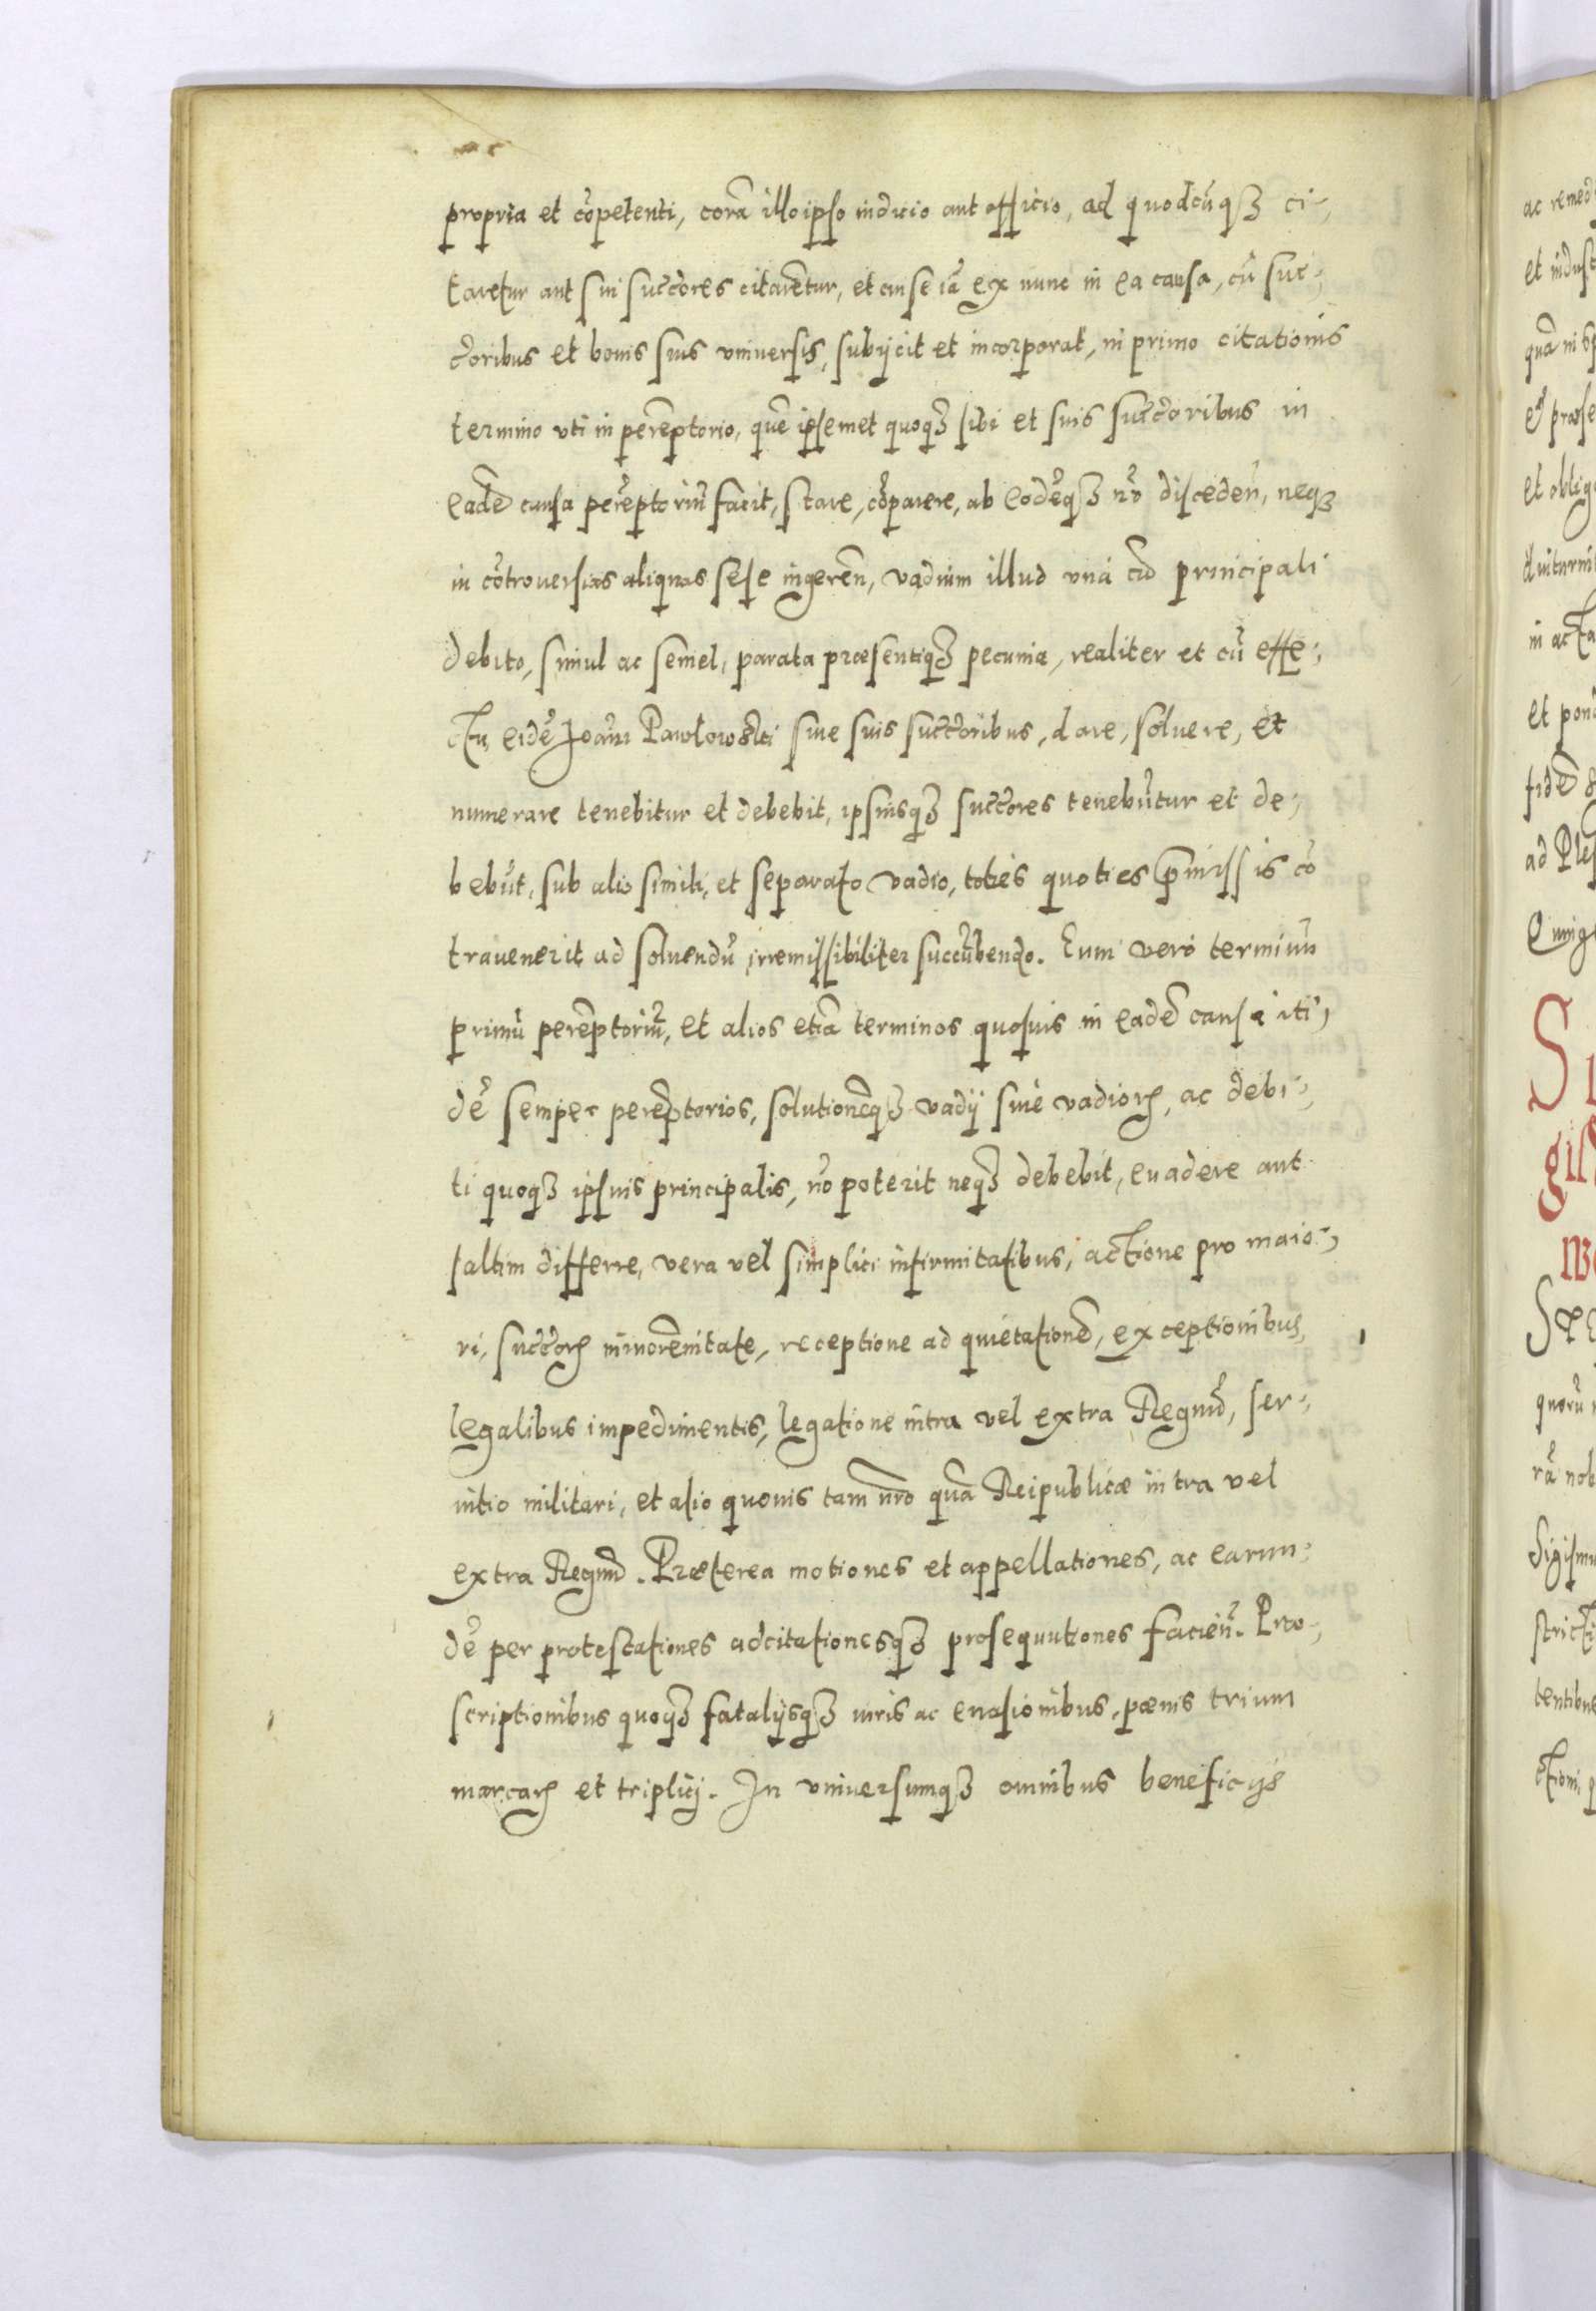 propria et cõpetenti, corã illo ipso iudicio aut officio, ad quodcũqꝫ ci-,
taretur aut sui succõres citarẽtur, et cui se iã ex nunc in ea causa, cũ suc-,
c̃oribus et bonis suis vniuersis, subijcit et incorporat, in primo citationis
termino vti in perẽptorio, quẽ ipsemet quoqꝫ sibi et suis succ̃oribus in
eadẽ causa perẽptoriũ facit, stare, cõparere, ab eodẽqꝫ nõ disceden̄, neqꝫ
in cõtrouersias aliquas sese ingerẽn, vadium illud vnà cũ principali
debito, simul ac semel, parata præsentiqꝫ pecunia, realiter et cũ effe-,
ctu, eidẽ Joãni Pawłowski siue suis succ̃oribus, dare, soluere, et
numerare tenebitur et debebit, ipsiusqꝫ succ̃ores tenebũtur et de-,
bebũt, sub alio simili, et separato vadio, toties quoties p̃missis cõ
trauenerit ad soluendũ irremissibiliter succũbendo. Eum vero terminũ
primũ perẽptoriũ, et alios etiã terminos quosuis in eadẽ causa iti-,
dẽ semper perẽptorios, solutionẽqꝫ vadij siue vadioꝝ, ac debi-,
ti quoqꝫ ipsius principalis, nõ poterit neqꝫ debebit, euadere aut
saltim differre, vera vel simplici infirmitatibus, actione pro maio-,
ri, succ̃oꝝ minorẽnitate, receptione ad quietationẽ, exceptionibus,
legalibus impedimentis, legatione intra vel extra Regnũ, ser-,
uitio militari, et alio quouis tam nr̃o quã Reipublicæ intra vel
extra Regnũ. Præterea motiones et appellationes, ac earun-,
dẽ per protestationes adcitationesqꝫ prosequutiones facien̄. Pro-,
scriptionibus quoqꝫ fatalijsqꝫ iuris ac euasionibus, pœnis trium
marcaꝝ et triplicj. In vniuersumqꝫ omnibus beneficijs